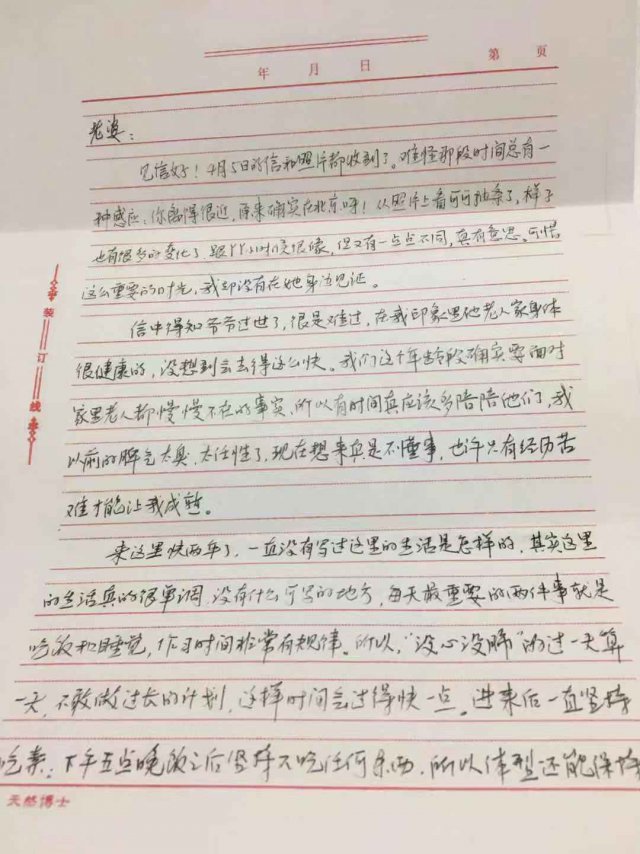 第 页
年 月 日
老婆：
见信好！4月5日的信和照片都收到了。难怪那段时间总有一
种感应：你离得很近，原来确实在北京呀！从照片上看可可抽条了，样子
也有很多的变化了，跟丫丫小时候很像，但又有一点点不同，真有意思。可惜
这么重要的时光，我却没有在她身边见证。
信中得知爷爷过世了，很是难过，在我印象里他老人家身体
很健康的，没想到会去得这么快。我们这个年龄段确实要面对
家里老人都慢慢不在的事实，所以有时间真应该多陪陪他们，我
以前的脾气太臭，太任性了，现在想来真是不懂事，也许只有经历苦
难才能让我成熟。
来这里快两年了，一直没有写过这里的生活是怎样的，其实这里
的生活真的很单调，没有什么可写的地方，每天最重要的两件事就是
吃饭和睡觉，作习时间非常有规律。所以，“没心没肺”的过一天算
一天，不敢做过长的计划，这样时间会过得快一点。进来后一直坚持
吃素，下午五点晚饭之后坚持不吃任何东西，所以体型还能保持
装订线
天然博士